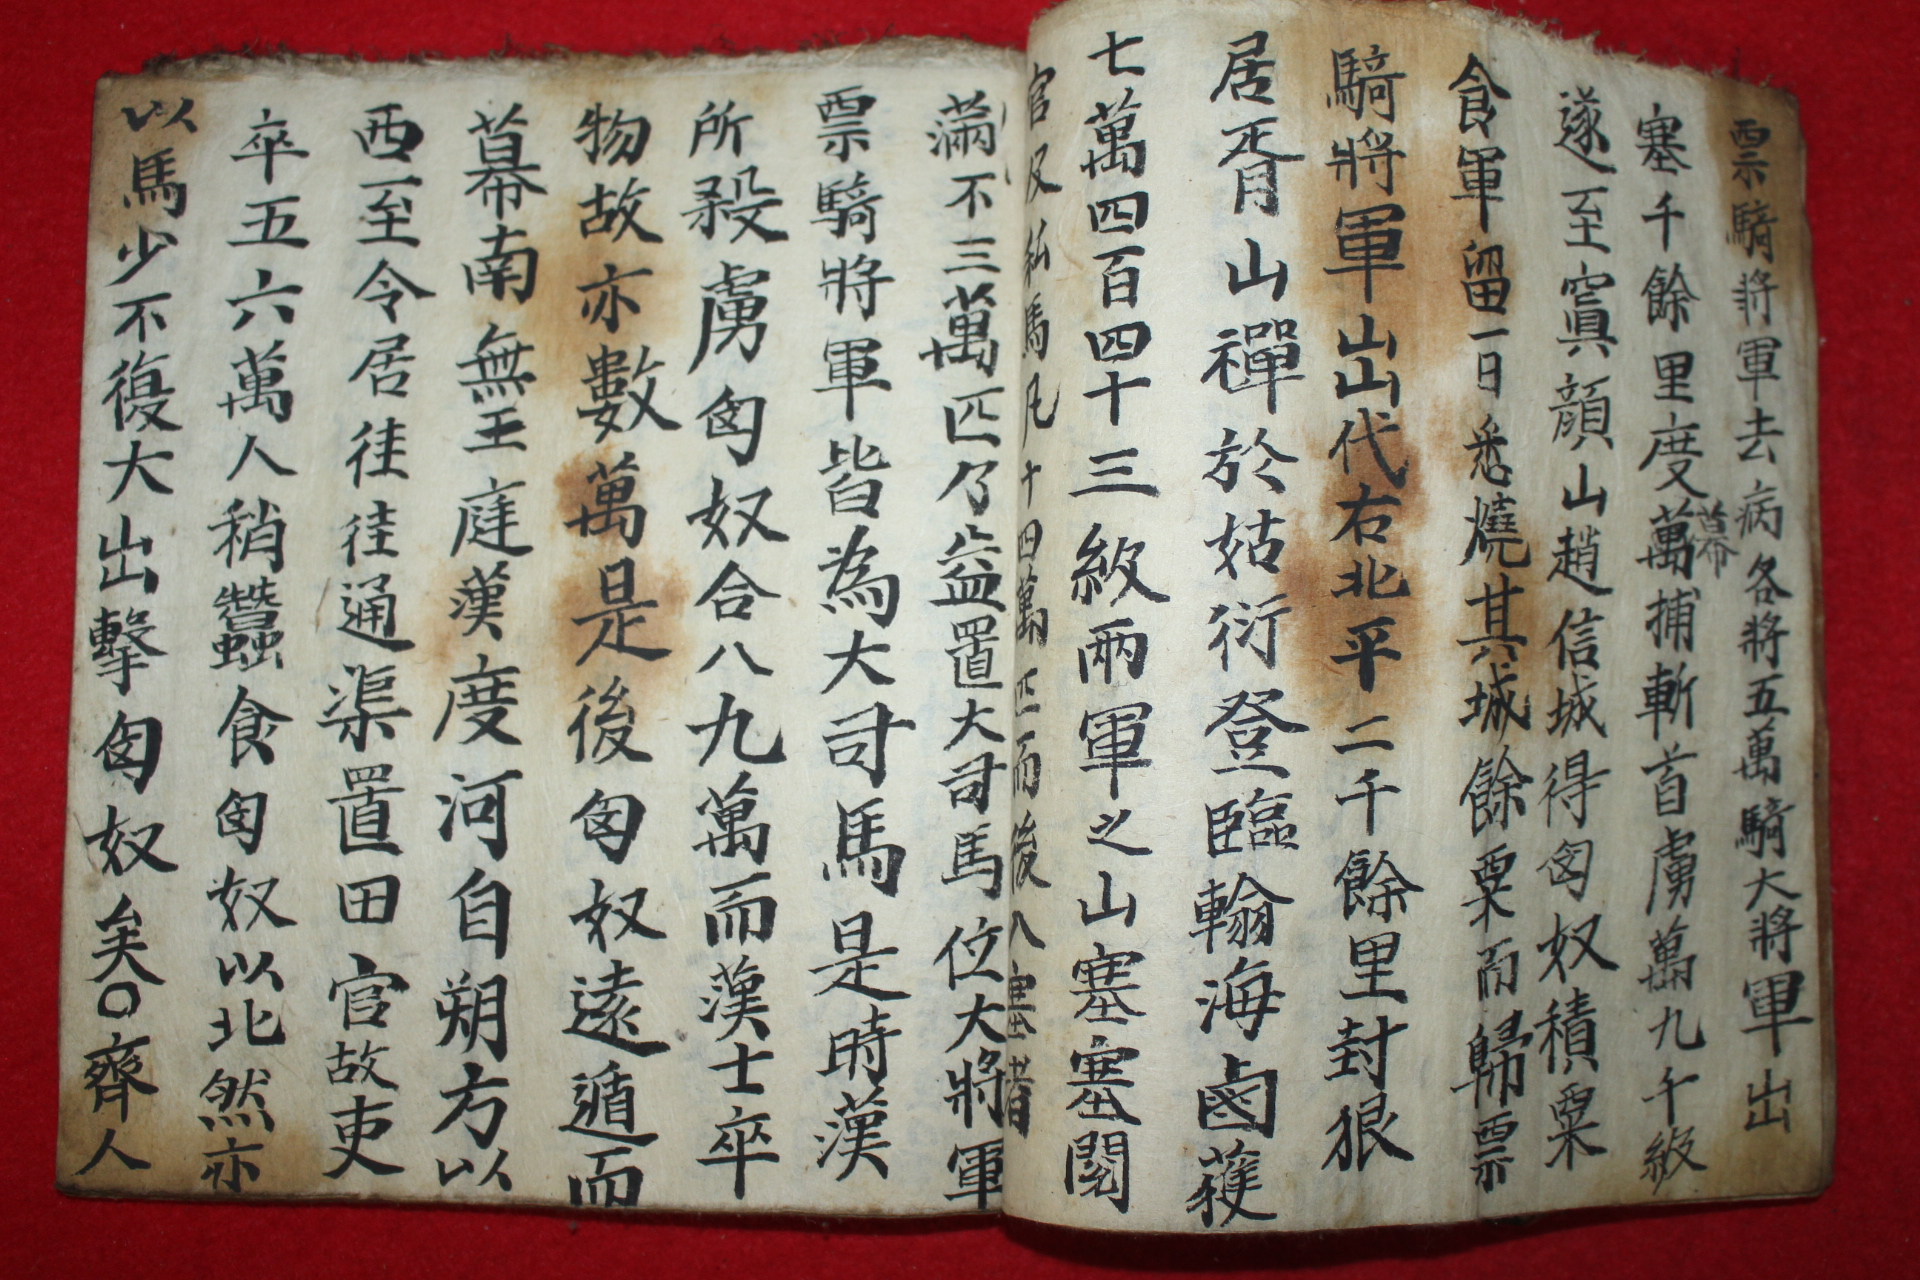 票騎將軍去病各將五萬騎大將軍出
塞千餘里度幕萬捕斬首虜萬九千級
遂至窴顔山趙信城得匈奴積粟
食軍留一日悉燒其城餘粟而歸票
騎將軍出代右北平二千餘里封狼
居胥山禪於姑衍登臨翰海鹵獲
七萬四百四十三級兩軍之出塞塞閱
官及私馬凡十四萬匹而後入塞者
滿不三萬匹乃益置大司馬位大將軍
票騎將軍皆為大司馬是時漢
所殺虜匈奴合八九萬而漢士卒
物故亦數萬是後匈奴遠遁而
幕南無王庭漢度河自朔方以
西至令居徃徃通渠置田官故吏
卒五六萬人稍蠶食匈奴以北然亦
以馬少不復大出擊匈奴矣○齊人